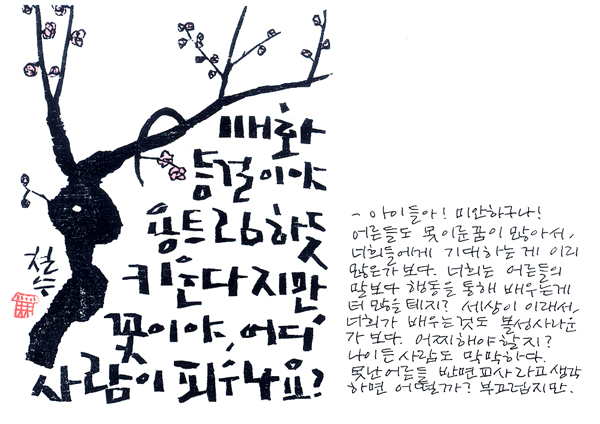 매화
등걸이야
용트림하듯
키운다지만
꽃이야, 어디
사람이 피우나요?
철수
- 아이들아! 미안하구나!
어른들도 못이룬꿈이 많아서,
너희들에게 기대하는게 이리
많은가 보다. 너희는 어른들의
말보다 행동을 통해 배우는게
더 많을테지? 세상이 이래서,
너희가 배우는것도 볼성사나운
가 보다. 어찌해야할지?
나이든 사람도 막막하다.
못난어른들 반면교사라고 생각
하면 어떨까? 부끄럽지만.